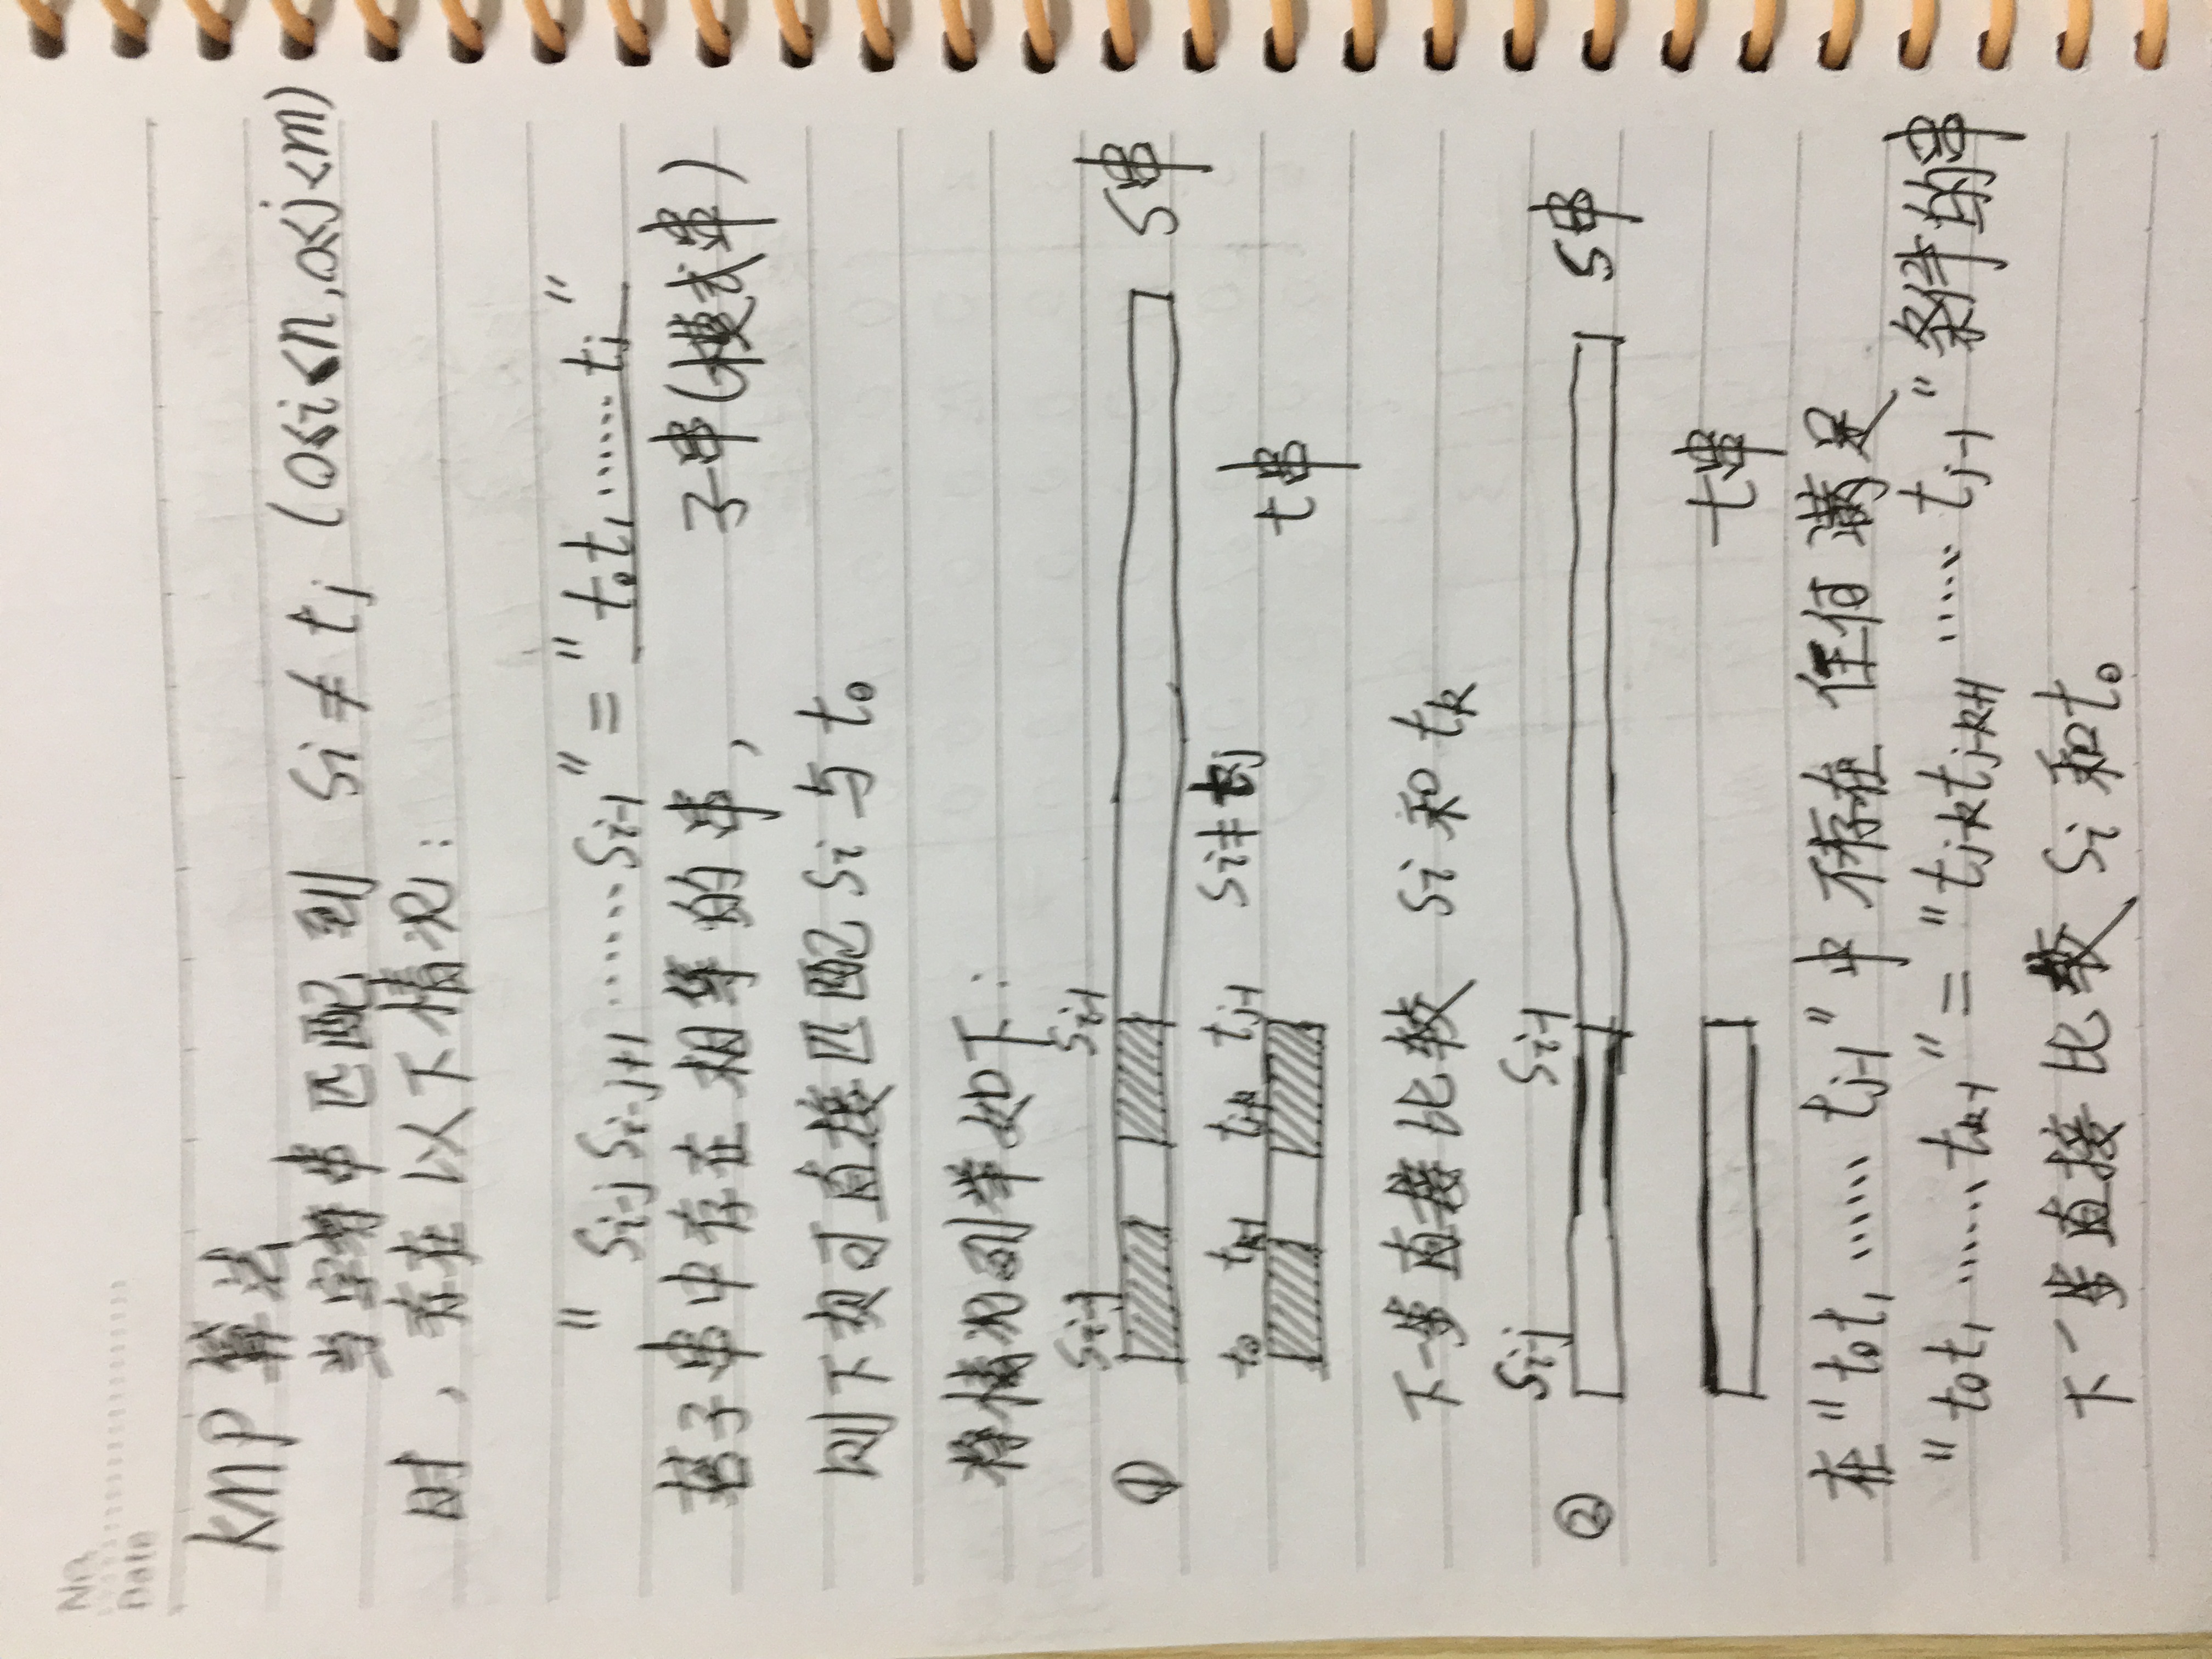 No.
Date
KMP 算法
当字符串匹配到 Si ≠ tj (0≤i<n,0≤j<m)
时，存在以下情况：
" Si-j Si-j+1 …… Si-1 " = " t0t1 …… tj "
若子串中存在相等的串， 子串(模式串)
则下次可直接匹配 Si 与 t0
将情况列举如下：
Si-j Si-1
① S串
t0 tk-1 tj-k tj-1 Si≠tj
t串
下一步直接比较 Si 和 tk
Si-j Si-1
② S串
t串
在"t0t1 …… tj-1"中不存在任何满足
"t0t1 …… tk-1" = "tj-ktj-k+1 …… tj-1"条件的串
下一步直接比较 Si 和t0